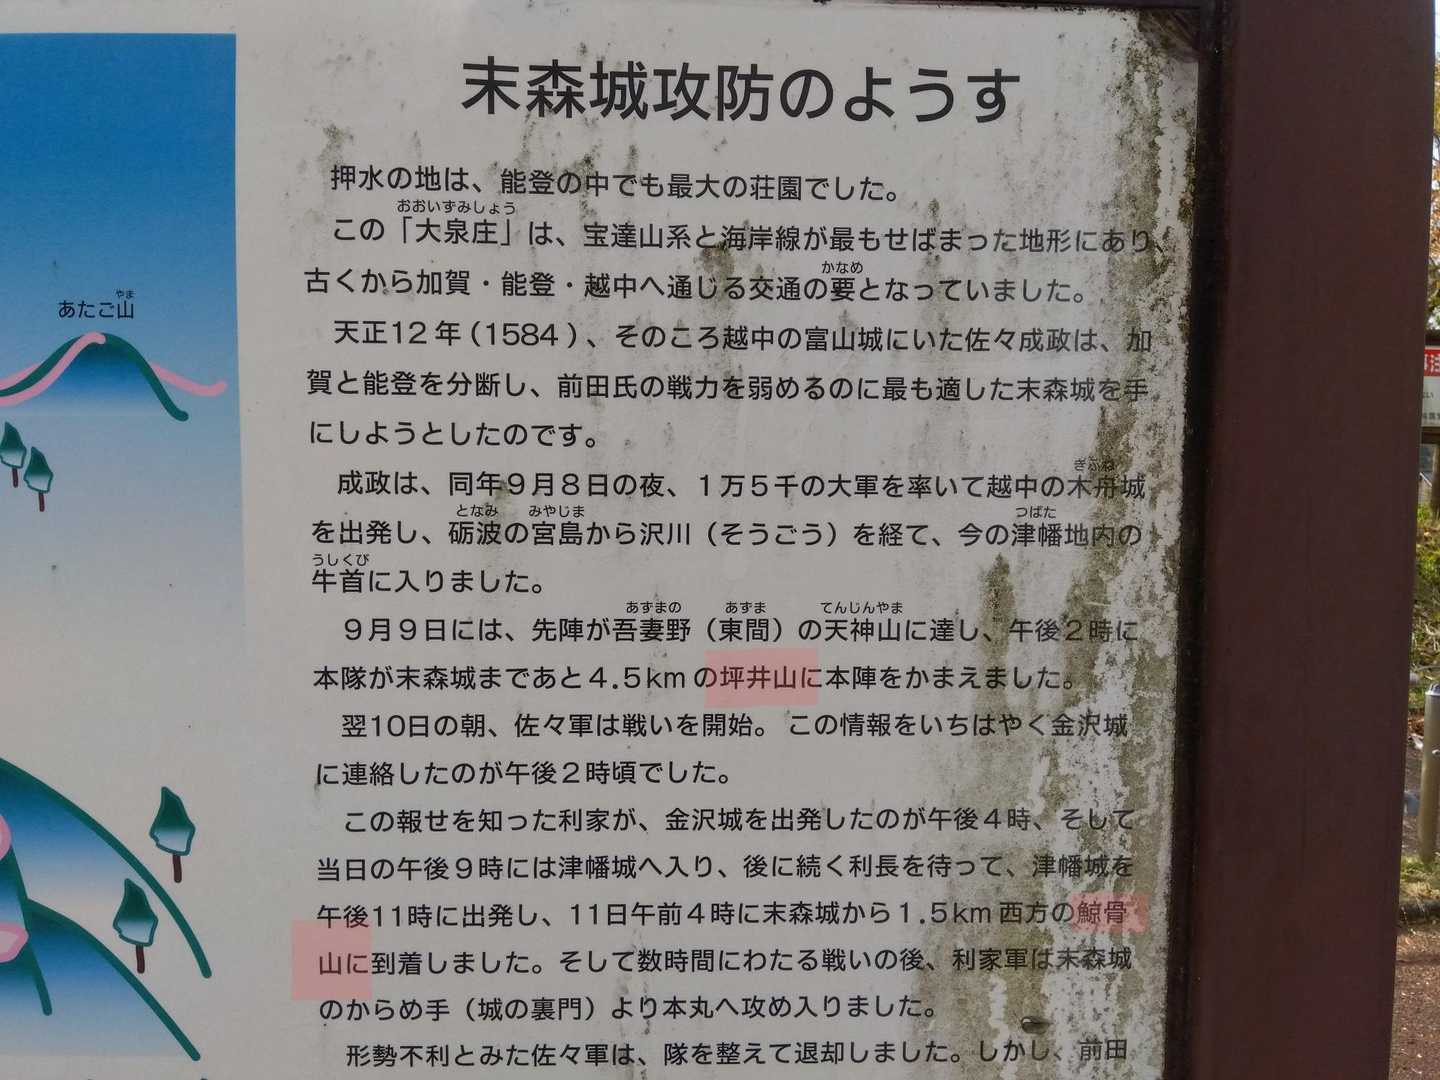 末森城攻防のようす
押水の地は、能登の中でも最大の荘園でした。
おおいずみしょう
この「大泉庄」は、宝達山系と海岸線が最もせばまった地形にあり、
かなめ
古くから加賀・能登・越中へ通じる交通の要となっていました。
やま
あたご山
天正12年(1584)、そのころ越中の富山城にいた佐々成政は、加
賀と能登を分断し、前田氏の戦力を弱めるのに最も適した末森城を手
にしようとしたのです。
ぎふね
成政は、同年9月8日の夜、1万5千の大軍を率いて越中の木舟城
となみ みやじま つばた
を出発し、砺波の宮島から沢川(そうごう)を経て、今の津幡地内の
うしくび
牛首に入りました。
あずまの あずま てんじんやま
9月9日には、先陣が吾妻野(東間)の天神山に達し、午後2時に
本隊が末森城まであと4.5kmの坪井山に本陣をかまえました。
翌10日の朝、佐々軍は戦いを開始。この情報をいちはやく金沢城
に連絡したのが午後2時頃でした。
この報せを知った利家が、金沢城を出発したのが午後4時、そして
当日の午後9時には津幡城へ入り、後に続く利長を待って、津幡城を
午後11時に出発し、11日午前4時に末森城から1.5km西方の鯨骨
山に到着しました。そして数時間にわたる戦いの後、利家軍は末森城
のからめ手(城の裏門)より本丸へ攻め入りました。
形勢不利とみた佐々軍は、隊を整えて退却しました。しかし、前田